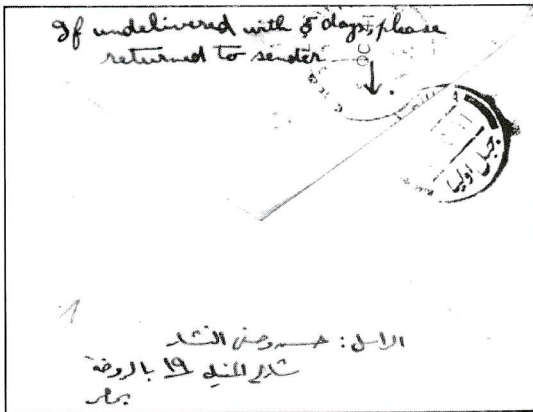 If undelivered with 5 days, please
returned to sender
جبل اوليا
الراسل: حسن وصفى النشار
شارع المنيل ١٩ بالروضة
بمصر